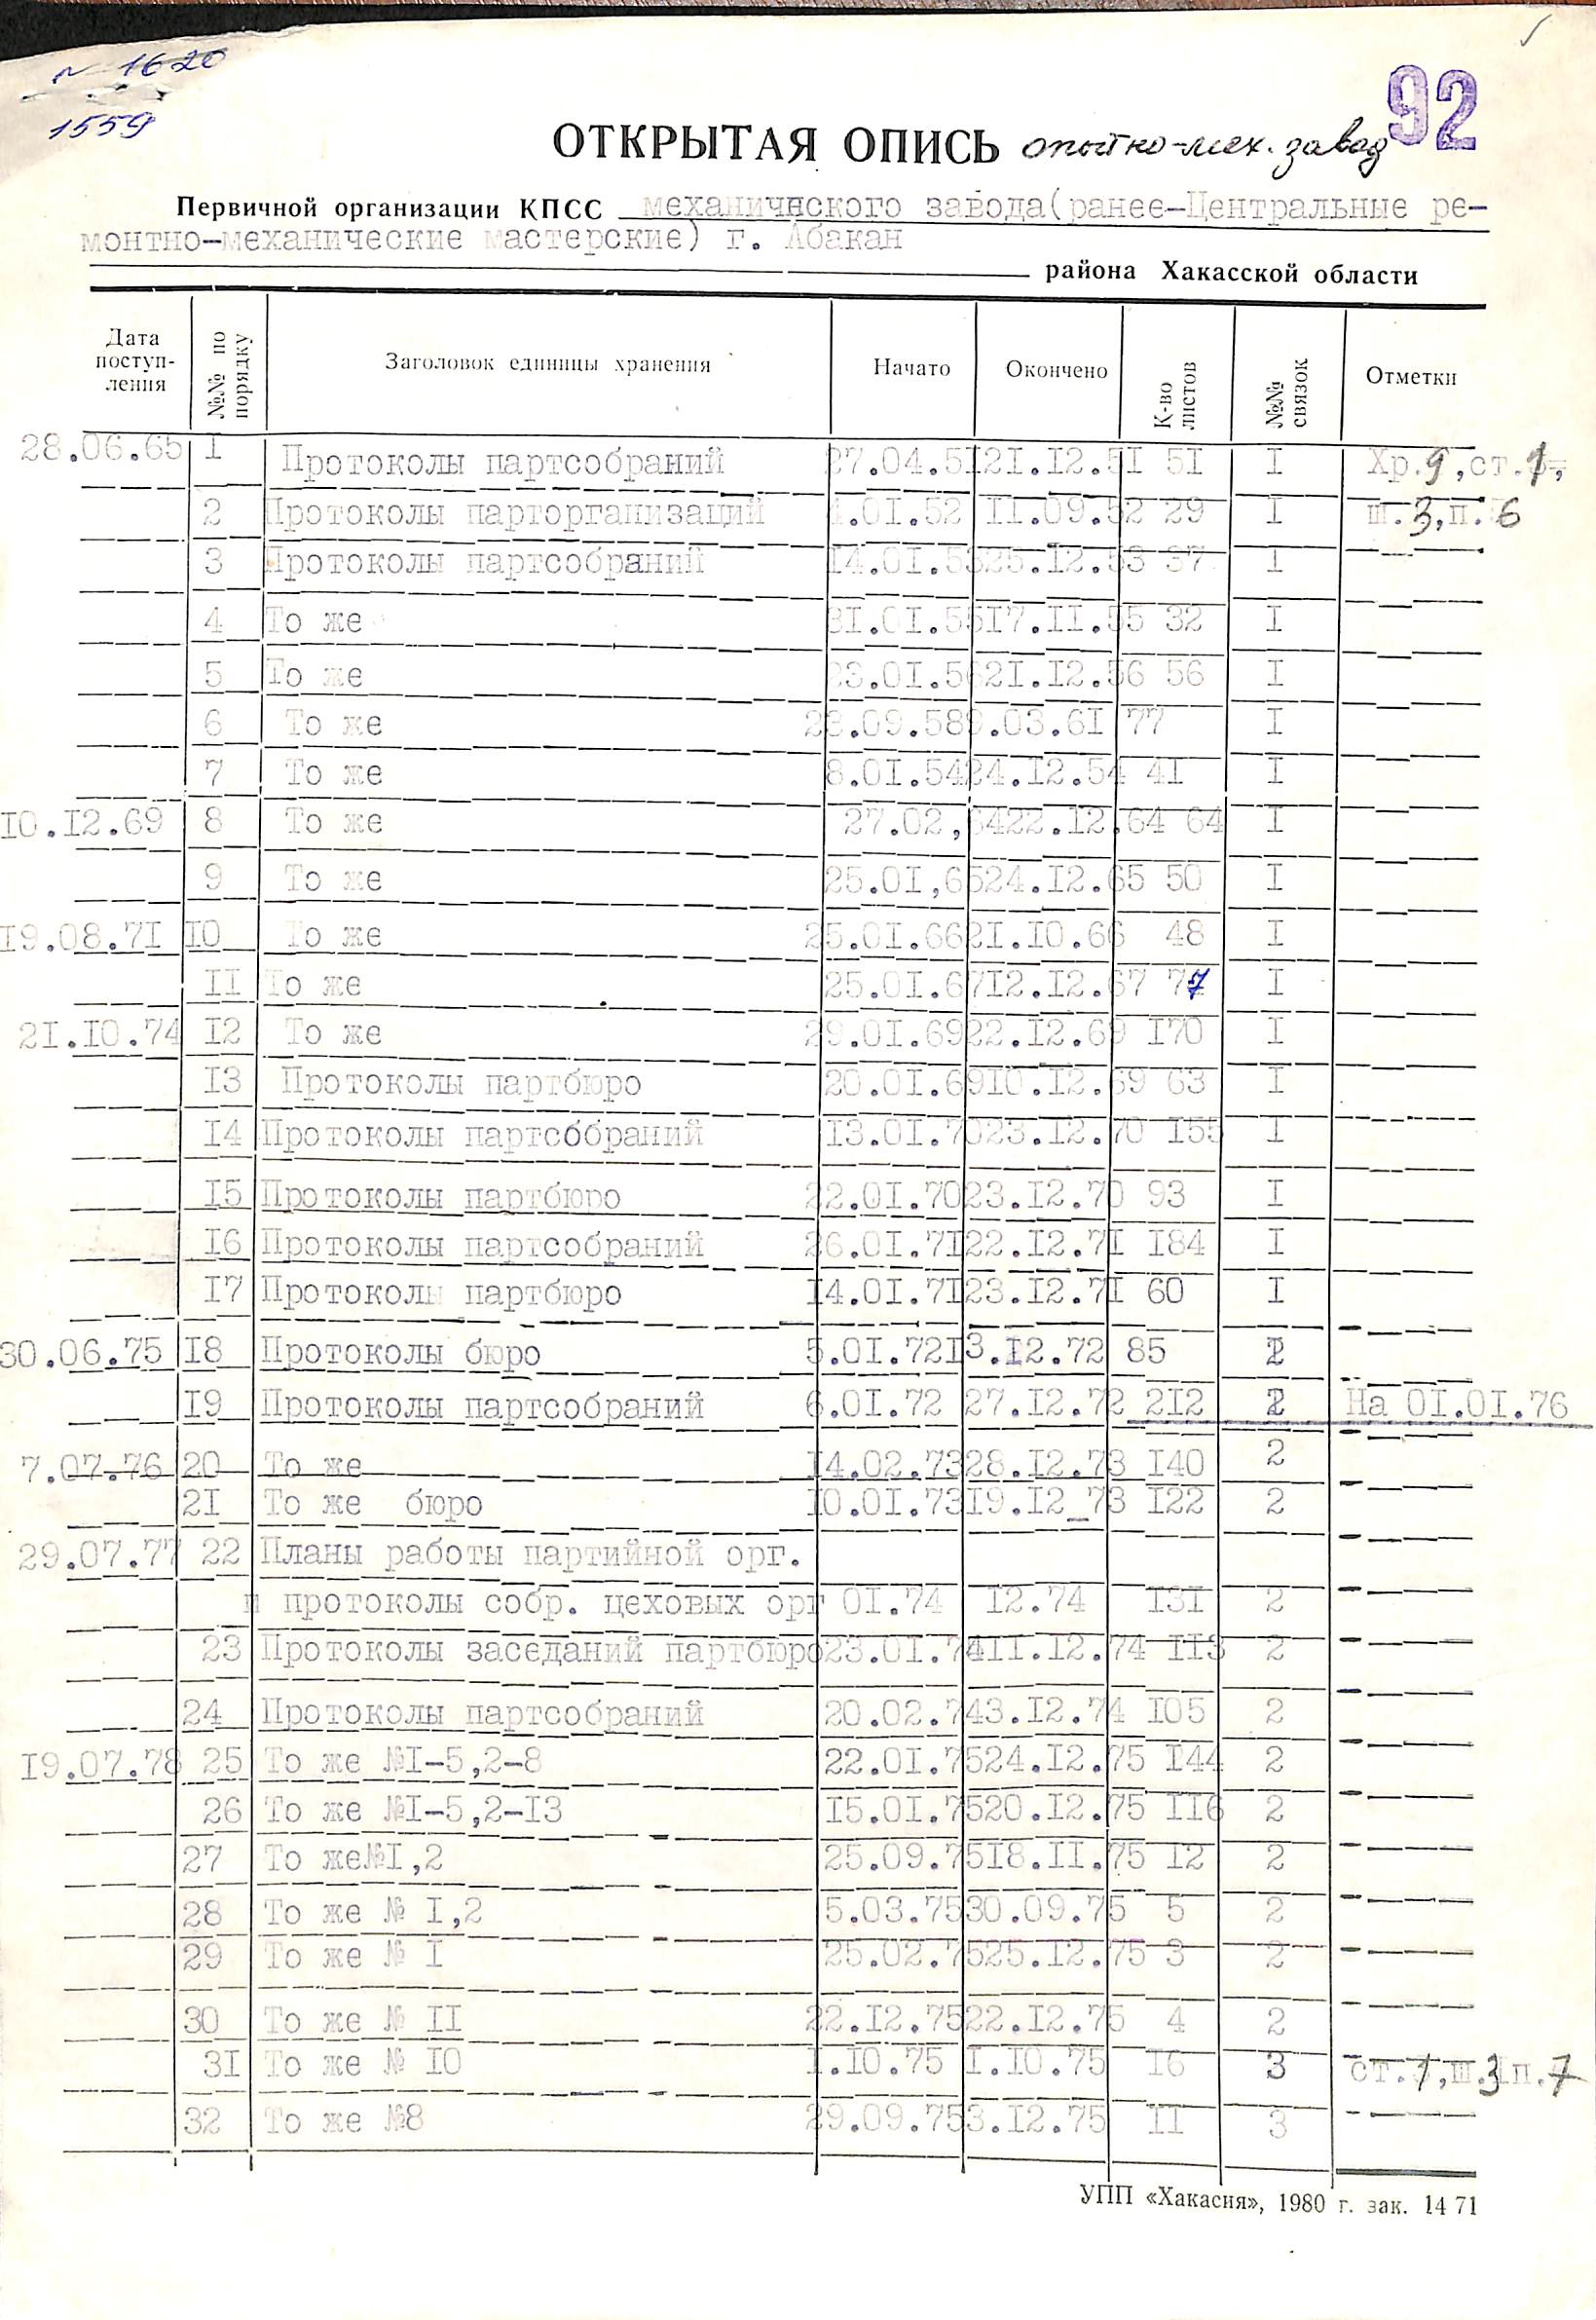 № 1620
1559
92
ОТКРЫТАЯ ОПИСЬ опытно-мех. завод
Первичной организации КПСС механического завода(ранее-Центральные ре-
монтно-механические мастерские) г. Абакан
района Хакасской области
Дата поступ- ления №№ по порядку Заголовок единицы хранения Начато Окончено К-во листов №№ связок Отметки
28.06.65 I Протоколы партсобраний 27.04.5I 2I.I2.5I 5I I Хр.9,ст.1,
2 Протоколы парторганизаций .0I.52 II.09.52 29 I ш.3,п.6
3 Протоколы партсобраний I4.0I.53 25.I2.53 37 I
4 То же 3I.0I.55 I7.II.55 32 I
5 То же 23.0I.56 2I.I2.56 56 I
6 То же 23.09.58 9.03.6I 77 I
7 То же 8.0I.54 24.I2.54 4I I
I0.I2.69 8 То же 27.02,64 22.I2.64 64 I
9 То же 25.0I,65 24.I2.65 50 I
I9.08.7I I0 То же 25.0I.66 2I.I0.66 48 I
II То же 25.0I.67 I2.I2.67 77 I
2I.I0.74 I2 То же 29.0I.69 22.I2.69 I70 I
I3 Протоколы партбюро 20.0I.69 I0.I2.69 63 I
I4 Протоколы партсобраний I3.0I.70 23.I2.70 I55 I
I5 Протоколы партбюро 22.0I.70 23.I2.70 93 I
I6 Протоколы партсобраний 26.0I.7I 22.I2.7I I84 I
I7 Протоколы партбюро I4.0I.7I 23.I2.7I 60 I
30.06.75 I8 Протоколы бюро 5.0I.72 I3.I2.72 85 2
I9 Протоколы партсобраний 6.0I.72 27.I2.72 2I2 2 На 0I.0I.76
7.07.76 20 То же I4.02.73 28.I2.73 I40 2
2I То же бюро I0.0I.73 I9.I2_73 I22 2
29.07.77 22 Планы работы партийной орг.
и протоколы собр. цеховых орг 0I.74 I2.74 I3I 2
23 Протоколы заседаний партбюро 23.0I.74 II.I2.74 II3 2
24 Протоколы партсобраний 20.02.74 3.I2.74 I05 2
I9.07.78 25 То же №I-5,2-8 22.0I.75 24.I2.75 I44 2
26 То же №I-5,2-I3 I5.0I.75 20.I2.75 II6 2
27 То же№I,2 25.09.75 I8.II.75 I2 2
28 То же № I,2 5.03.75 30.09.75 5 2
29 То же № I 25.02.75 25.I2.75 3 2
30 То же № II 22.I2.75 22.I2.75 4 2
3I То же № I0 I.I0.75 I.I0.75 I6 3 ст.1,ш.3 п.7
32 То же №8 29.09.75 3.I2.75 II 3
УПП «Хакасия», 1980 г. зак. 1471